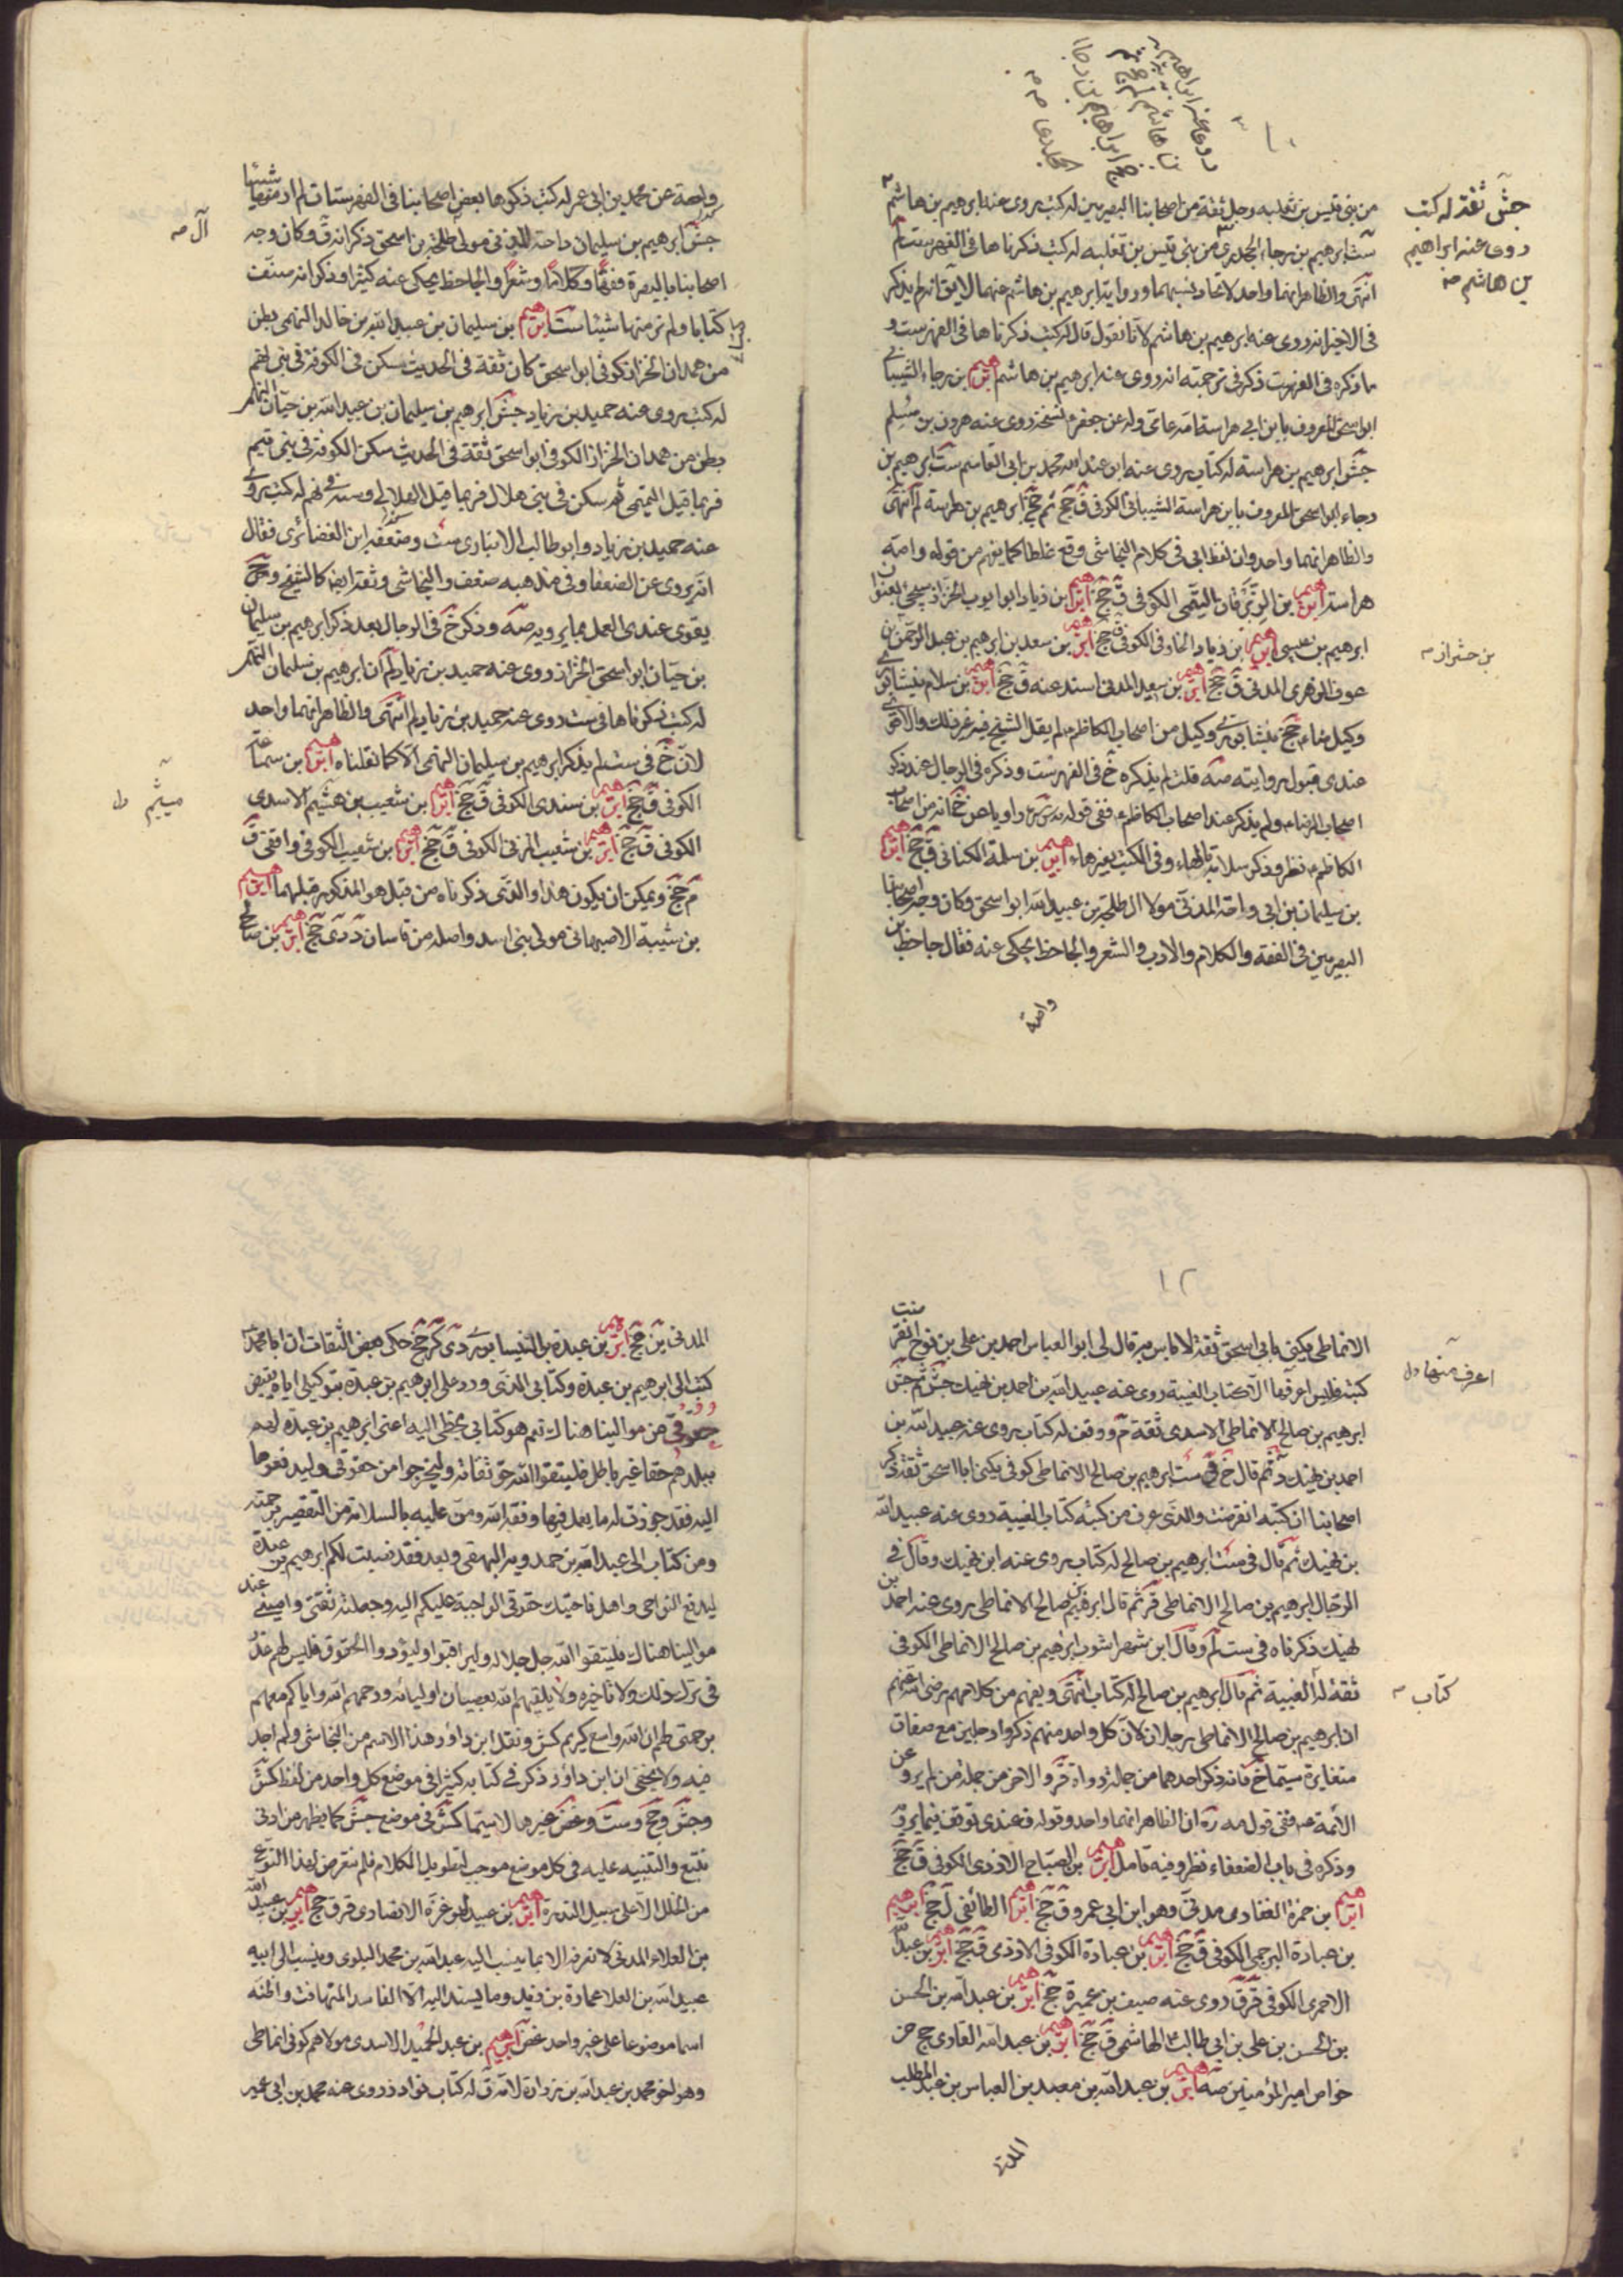 جش ثقة له كتب
روى عنه ابراهيم
بن هاشم صه
من بنى قيس بن ثعلبه رجل ثقة من اصحابنا البصريين له كتب يروى عنه ابرهيم بن هاشم
ست ابرهيم بن رجاء الجحدرى من بنى قيس بن ثعلبه له كتب ذكرناها فى الفهرست لم
انتهى والظاهر انهما واحد لاتحاد نسبهما ورواية ابرهيم بن هاشم عنهما لا يق انه لم يذكر
فى الاخير انه روى عنه ابرهيم بن هاشم لانا نقول قال له كتب ذكرناها فى الفهرست و
ما ذكره فى الفهرست ذكر فى ترجمته انه روى عنه ابرهيم بن هاشم ابرهيم بن رجاء الشيبانى
ابو اسحق المعروف بابن ابى هراسة امه عامى وله عن جعفر نسخة روى عنه هرون بن مسلم
جش ابرهيم بن هراسة له كتاب يروى عنه ابن عبد الله محمد بن ابى القاسم ست ابرهيم بن
رجاء ابو اسحق المعروف بابن هراسة الشيبانى الكوفى ق جخ ثم جخ ابرهيم بن هراسة لم انتهى
والظاهر انهما واحد وان لفظ ابى فى كلام النجاشى وقع غلطا كما يفهم من قوله وامه
هراسة ابرهيم بن الزبرقان التيمى الكوفى ق جخ ابرهيم بن زياد ابو ايوب الخزاز سيجئ بعنوان
ابرهيم بن عيسى ابرهيم بن زياد الخارفى الكوفى ق جخ ابرهيم بن سعد بن ابرهيم بن عبد الرحمن بن
عوف الزهرى المدنى ق جخ ابرهيم بن سعيد المدنى اسند عنه ق جخ ابرهيم بن سلام نيشابورى
وكيل ضا جخ نيشابورى وكيل من اصحاب الكاظم لم يقل الشيخ فيه غير ذلك والاقوى
عندى قبول روايته صه قلت لم يذكره خ فى الفهرست وذكره فى الرجال عند ذكر
اصحاب الرضا ولم يذكر عند اصحاب الكاظم ففى قوله
الكاظم نظر وذكر سلامة بالهاء وفى الكتب بغيرهاء ابرهيم بن سلمة الكنانى ق جخ ابرهيم
بن سليمان بن ابى داحة المدنى مولا ال طلحة بن عبيد الله ابو اسحق وكان وجه اصحابنا
البصريين فى الفقه والكلام والادب والشعر والجاحظ يحكى عنه فقال جاحظ ابن
آل صه
داحة عن محمد بن ابى عمير له كتب ذكرها بعض اصحابنا فى الفهرستات لم ار منها شيئا
جش ابرهيم بن سليمان داحة المدنى مولى طلحة بن اسحق ذكر انه ق وكان وجه
اصحابنا بالبصرة فقها وكلاما وشعرا والجاحظ يحكى عنه كثيرا وذكر انه صنف
كتابا ولم نر منها شيئا ست ابرهيم بن سليمان بن عبيد الله بن خالد النهمى بطن
من همدان الخزاز كوفى ابو اسحق كان ثقة فى الحديث سكن فى الكوفة فى بنى نهم
له كتب يروى عنه حميد بن زياد جش ابرهيم بن سليمان بن عبد الله بن حيان النهمى
بطن من همدان الخزاز الكوفى ابو اسحق ثقة فى الحديث سكن الكوفة فى بنى تيم
فربما قيل التيمى ثم سكن فى بنى هلال فربما قيل الهلالى ونسبه فى نهم له كتب روى
عنه حميد بن زياد وابو طالب الانبارى ست وضعفه ابن الغضائرى فقال
انه يروى عن الضعفا وفى مذهبه ضعف والنجاشى وثقه ايضا كالشيخ وحينئذ
يقوى عندى العمل بما يرويه صه وذكر خ فى الرجال بعد ذكر ابرهيم بن سليمان
بن حيان ابو اسحق الخزاز روى عنه حميد بن زياد لم ان ابرهيم بن سليمان النهمى
له كتب ذكرناها فى ست روى عنه حميد بن زياد لم انتهى والظاهر انهما واحد
لان خ فى ست لم يذكر ابرهيم بن سليمان النهمى الا كما نقلناه ابرهيم بن سماعة
الكوفى ق جخ ابرهيم بن سندى الكوفى ق جخ ابرهيم بن شعيب بن هشيم الاسدى
ميثم ول
الكوفى ق جخ ابرهيم بن شعيب المزنى الكوفى ق جخ ابرهيم بن شعيب الكوفى واقفى ق
م جخ ويمكن ان يكون هذا والذى ذكرناه من قبل هو المذكور قبلهما ابرهيم
بن شيبة الاصبهانى مولى بنى اسد واصله من قاسان د دى جخ ابرهيم بن صالح
١٢
الانماطى يكنى بابى اسحق ثقة لا باس به قال لى ابو العباس احمد بن على بن نوح انقرضت
كتبه فليس اعرف منها الا كتاب الغيبة روى عنه عبيد الله بن احمد بن نهيك جش ثم جش
اعرف منها ول
ابرهيم بن صالح الانماطى الاسدى ثقة م ووقف له كتاب يروى عنه عبيد الله بن
احمد بن نهيك د ثم قال خ فى ست ابرهيم بن صالح الانماطى كوفى يكنى ابا اسحق ثقة ذكر
اصحابنا ان كتبه انقرضت والذى عرف من كتبه كتاب الغيبة روى عنه عبيد الله
بن نهيك ثم قال فى ست ابرهيم بن صالح له كتاب يروى عنه ابن نهيك وقال فى
الرجال ابرهيم بن صالح الانماطى قر ثم قال ابرهيم بن صالح الانماطى يروى عنه احمد بن
نهيك ذكرناه فى ست لم وقال ابن شهراشوب ابرهيم بن صالح الانماطى الكوفى
ثقة له الغيبة ثم قال ابرهيم بن صالح له كتاب انتهى ويفهم من كلامهم رضى الله عنهم
كتاب
ان ابرهيم بن صالح الانماطى رجلان لان كل واحد منهم ذكروا رجلين مع صفات
متغايرة سيما خ فانه ذكر احدهما من جملة رواة قر والاخر من جملة من لم يرو عن
الائمة ففى قول مه ره ان الظاهر انهما واحد وقوله فعندى توقف فيما يرويه
وذكره فى باب الضعفاء نظر وفيه تامل ابرهيم بن الصباح الازدى الكوفى ق جخ
ابرهيم بن ضمرة الغفارى مدنى وهو ابن ابى عمرو ق جخ ابرهيم الطائفى ل جخ ابرهيم
بن عبادة البرجمى الكوفى ق جخ ابرهيم بن عبادة الكوفى الازدى ق جخ ابرهيم بن عبد الله
الاحمرى الكوفى قر ق روى عنه سيف بن عميرة جخ ابرهيم بن عبد الله بن الحسن
بن الحسن بن على بن ابى طالب الهاشمى ق جخ ابرهيم بن عبد الله القارى جخ من
خواص امير المؤمنين صه ابرهيم بن عبد الله بن معبد بن العباس بن عبد المطلب
المدنى
المدنى ين جخ ابرهيم بن عبدة النيسابورى دى كر جخ حكى بعض الثقات ان ابا محمد
كتب الى ابرهيم بن عبدة وكتابى الذى ورد على ابرهيم بن عبدة بتوكيلى اياه بقبض
حقوقى من موالينا هناك نعم هو كتابى بخطى اليه اعنى ابرهيم بن عبدة لهم
ببلدهم حقا غير باطل فليتقوا الله حق تقاته وليخرجوا من حقوقى وليدفعوها
اليه فقد جوزت له ما يعمل فيها وفقه الله ومن عليه بالسلامة من التقصير برحمته
ومن كتاب الى عبد الله بن حمدويه البيهقى وبعد فقد نصبت لكم ابرهيم بن عبدة
ليدفع النواحى واهل ناحيتك حقوقى الواجبة عليكم اليه وجعلته ثقتى وامينى عند
موالينا هناك فليتقوا الله جل جلاله وليراقبوا وليؤدوا الحقوق فليس لهم عذر
فى ترك ذلك ولا تاخيره ولا يشقيهم الله بعصيان اوليائه ورحمهم الله واياكم معهم
برحمتى لهم ان الله واسع كريم كش ونقل ابن داود هذا الاسم من النجاشى ولم اجد
فيه ولا يخفى ان ابن داود ذكر فى كتابه كثيرا فى موضع كل واحد من لفظ كش
وجش وجخ وست وغض غيرها لا سيما كش فى موضع جش كما يظهر من ادنى
تتبع والتنبيه عليه فى كل موضع موجب لتطويل الكلام فلم نتعرض لهذا النوع
من الخلل الا على سبيل الندرة ابرهيم بن عبيد ابو غرة الانصارى قر ق جخ ابرهيم بن عبيد الله
بن العلاء المدنى لا نعرفه الا بما ينسب اليه عبد الله بن محمد البلوى وينسب الى ابيه
عبيد الله بن العلا عمارة بن زيد وما يسند اليه الا الفاسد المتهافت واظنه
اسما موضوعا على غير واحد غض ابرهيم بن عبد الحميد الاسدى مولاهم كوفى انماطى
وهو اخو محمد بن عبد الله بن زرارة لامه ق له كتاب نوادر روى عنه محمد بن ابى عمير